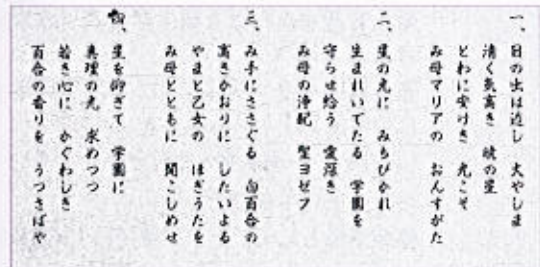 一、
日の出は近し 大やしま
清く気高き 暁の星
とわに安けき 光こそ
み母マリアの おんすがた
二、
星の光に みちびかれ
生まれいでたる 学園を
守らせ給う 愛深き
み母の浄配 聖ヨゼフ
三、
み手にささぐる 白百合の
高きかおりに したいよる
やまと乙女の ほぎうたを
み母とともに 聞こしめせ
四、
星を仰ぎて 学園に
真理の光 求めつつ
若き心に かぐわしき
百合の香りを うつさばや